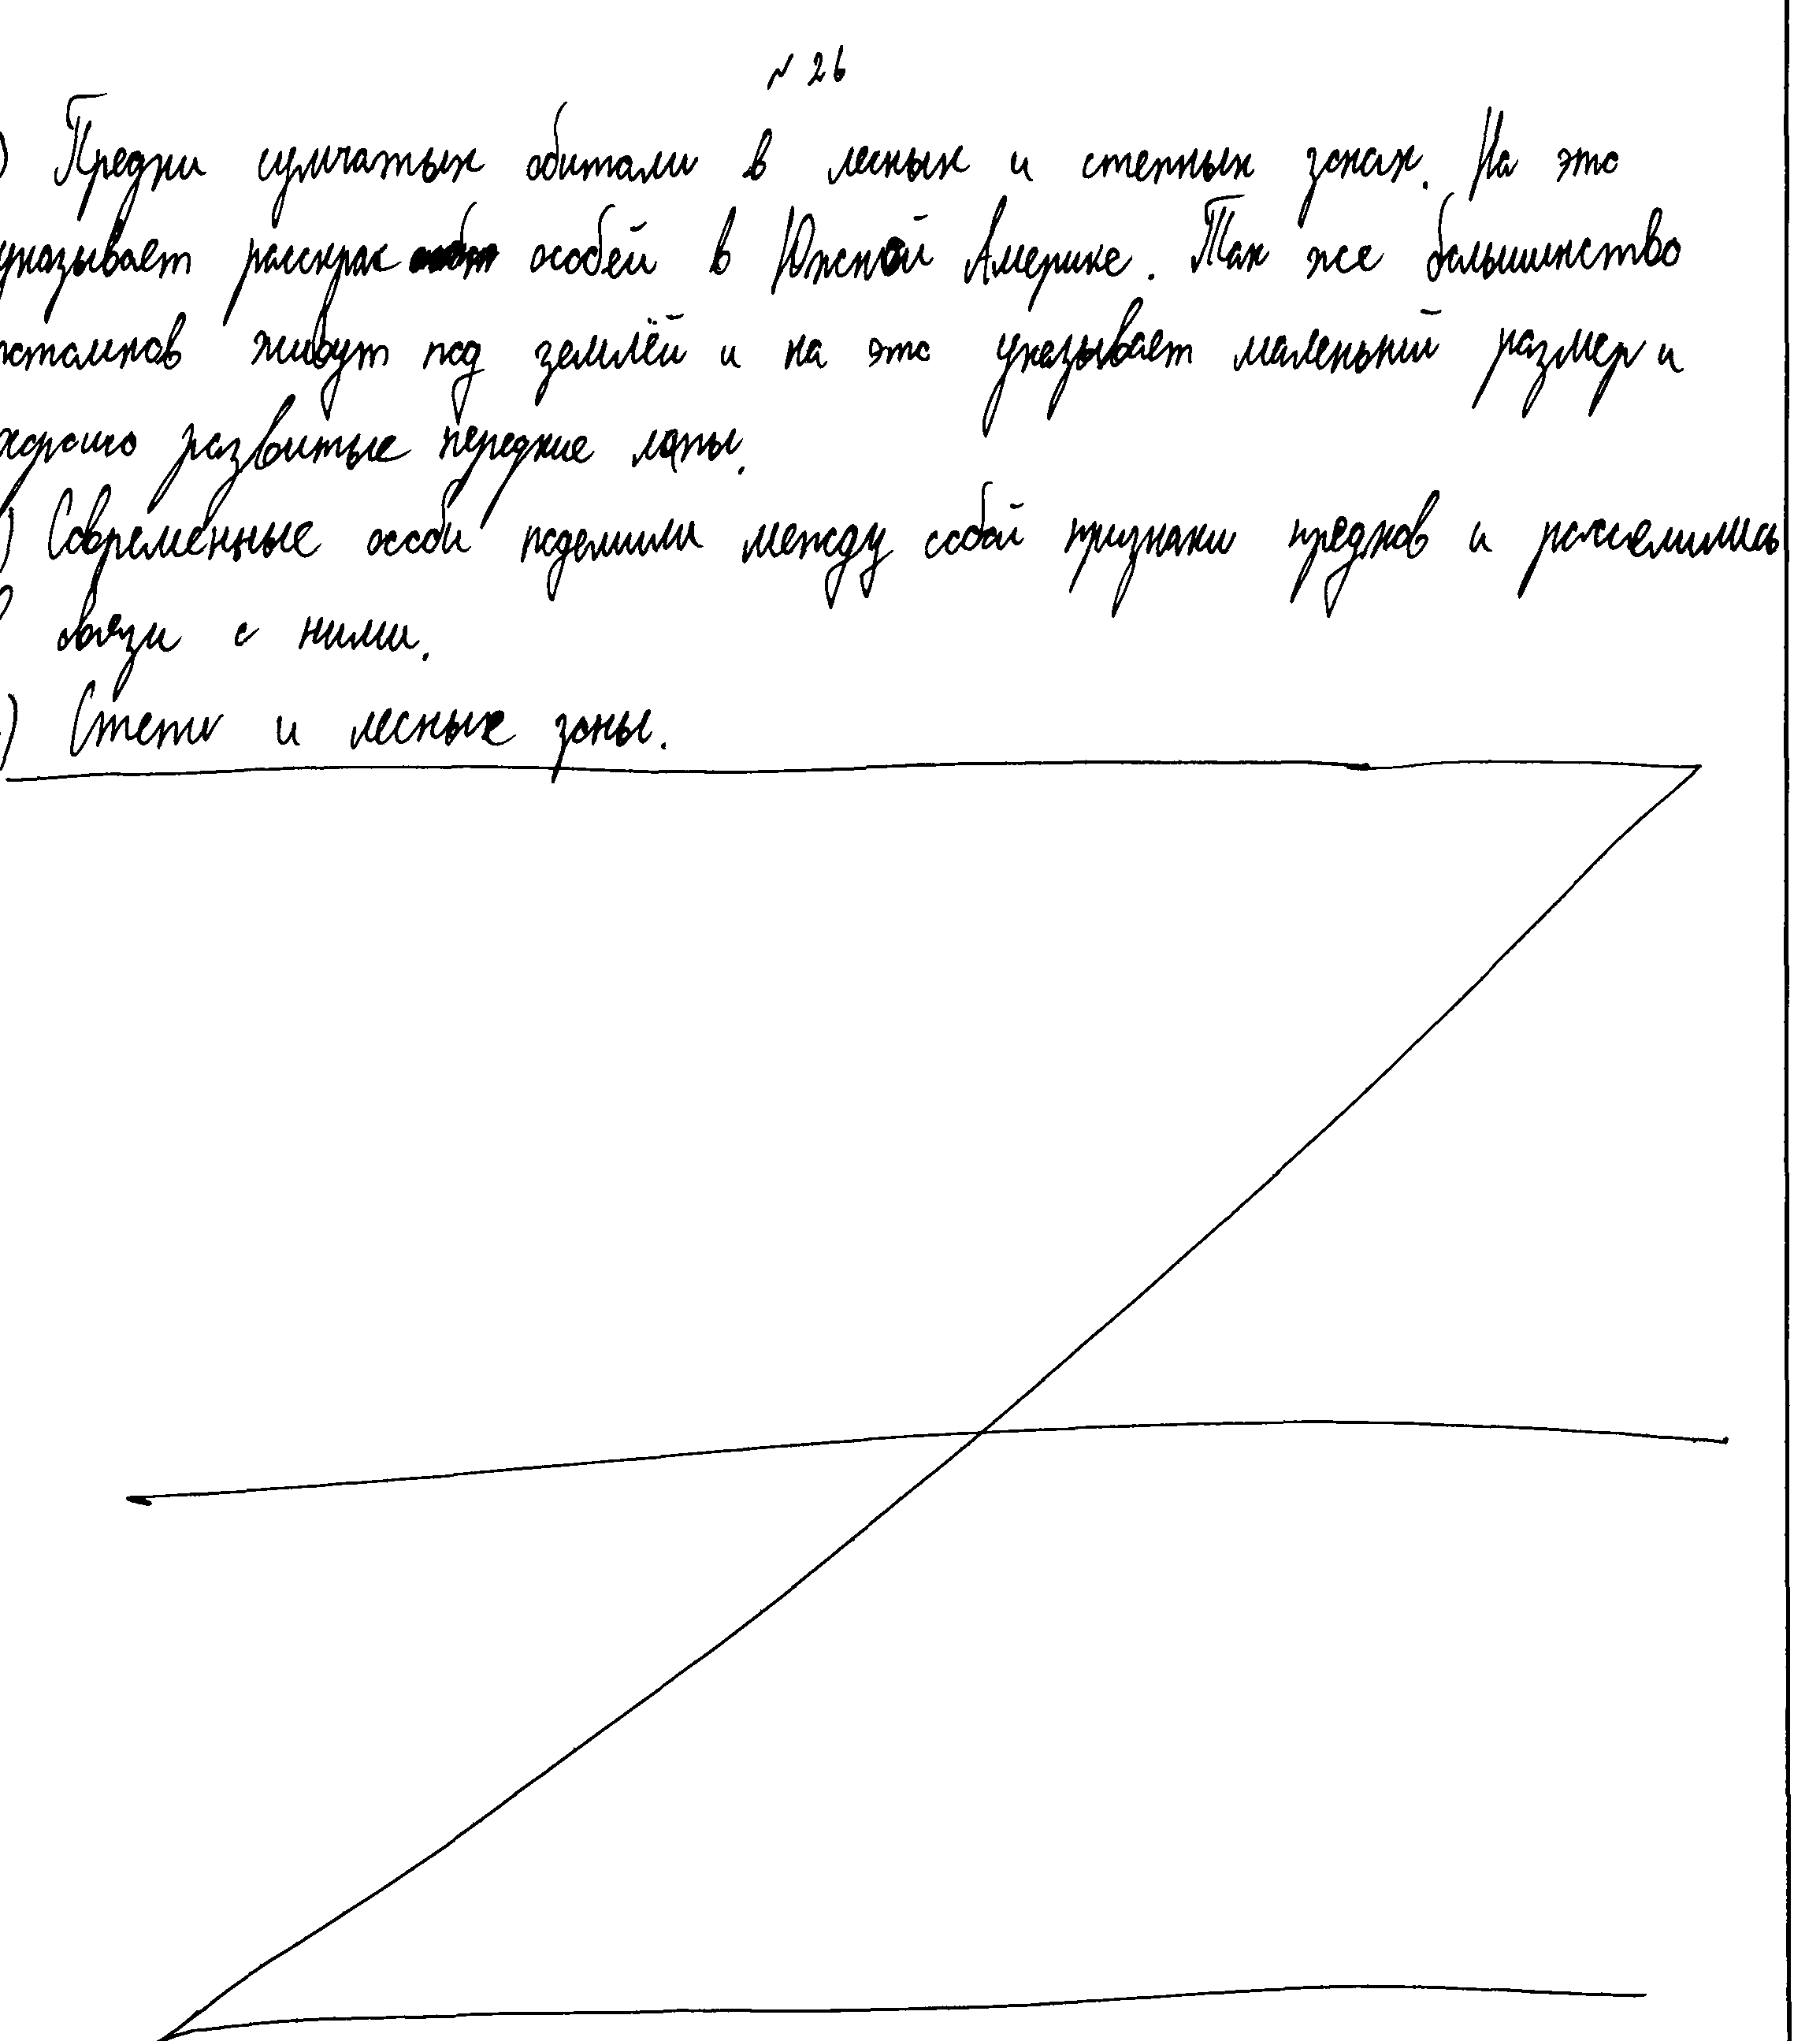 № 26
) Предки сумчатых обитали в лесных и степных зонах. На это
указывает расскрас особей в Южной Америке. Так же большинство
потомков живут под землёй и на это указывает маленький размер и
хорошо развитые передние лапы.
) Современные особи поделили между собой признаки предков и расселились
в связи с ними.
) Степи и лесные зоны.